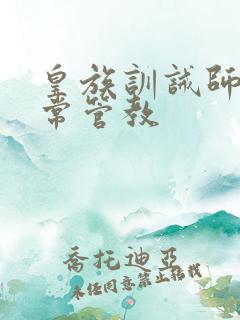 皇族訓誡師
常管教
喬托迪亞
未任同意禁止转载